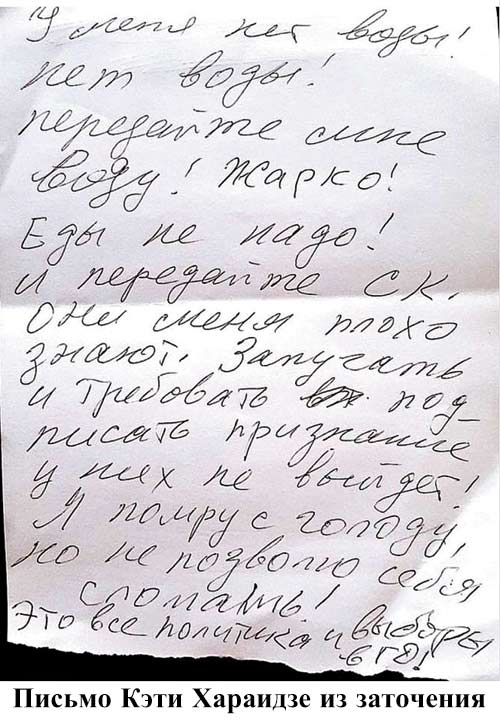 У меня нет воды!
нет воды!
передайте мне
воду! Жарко!
Еды не надо!
и передайте СК,
они меня плохо
знают. Запугать
и требовать под_
писать признание
у них не выйдет!
Я помру с голоду,
но не позволю себя
сломать!
Это все политика и выборы
в ГД!
Письмо Кэти Хараидзе из заточения